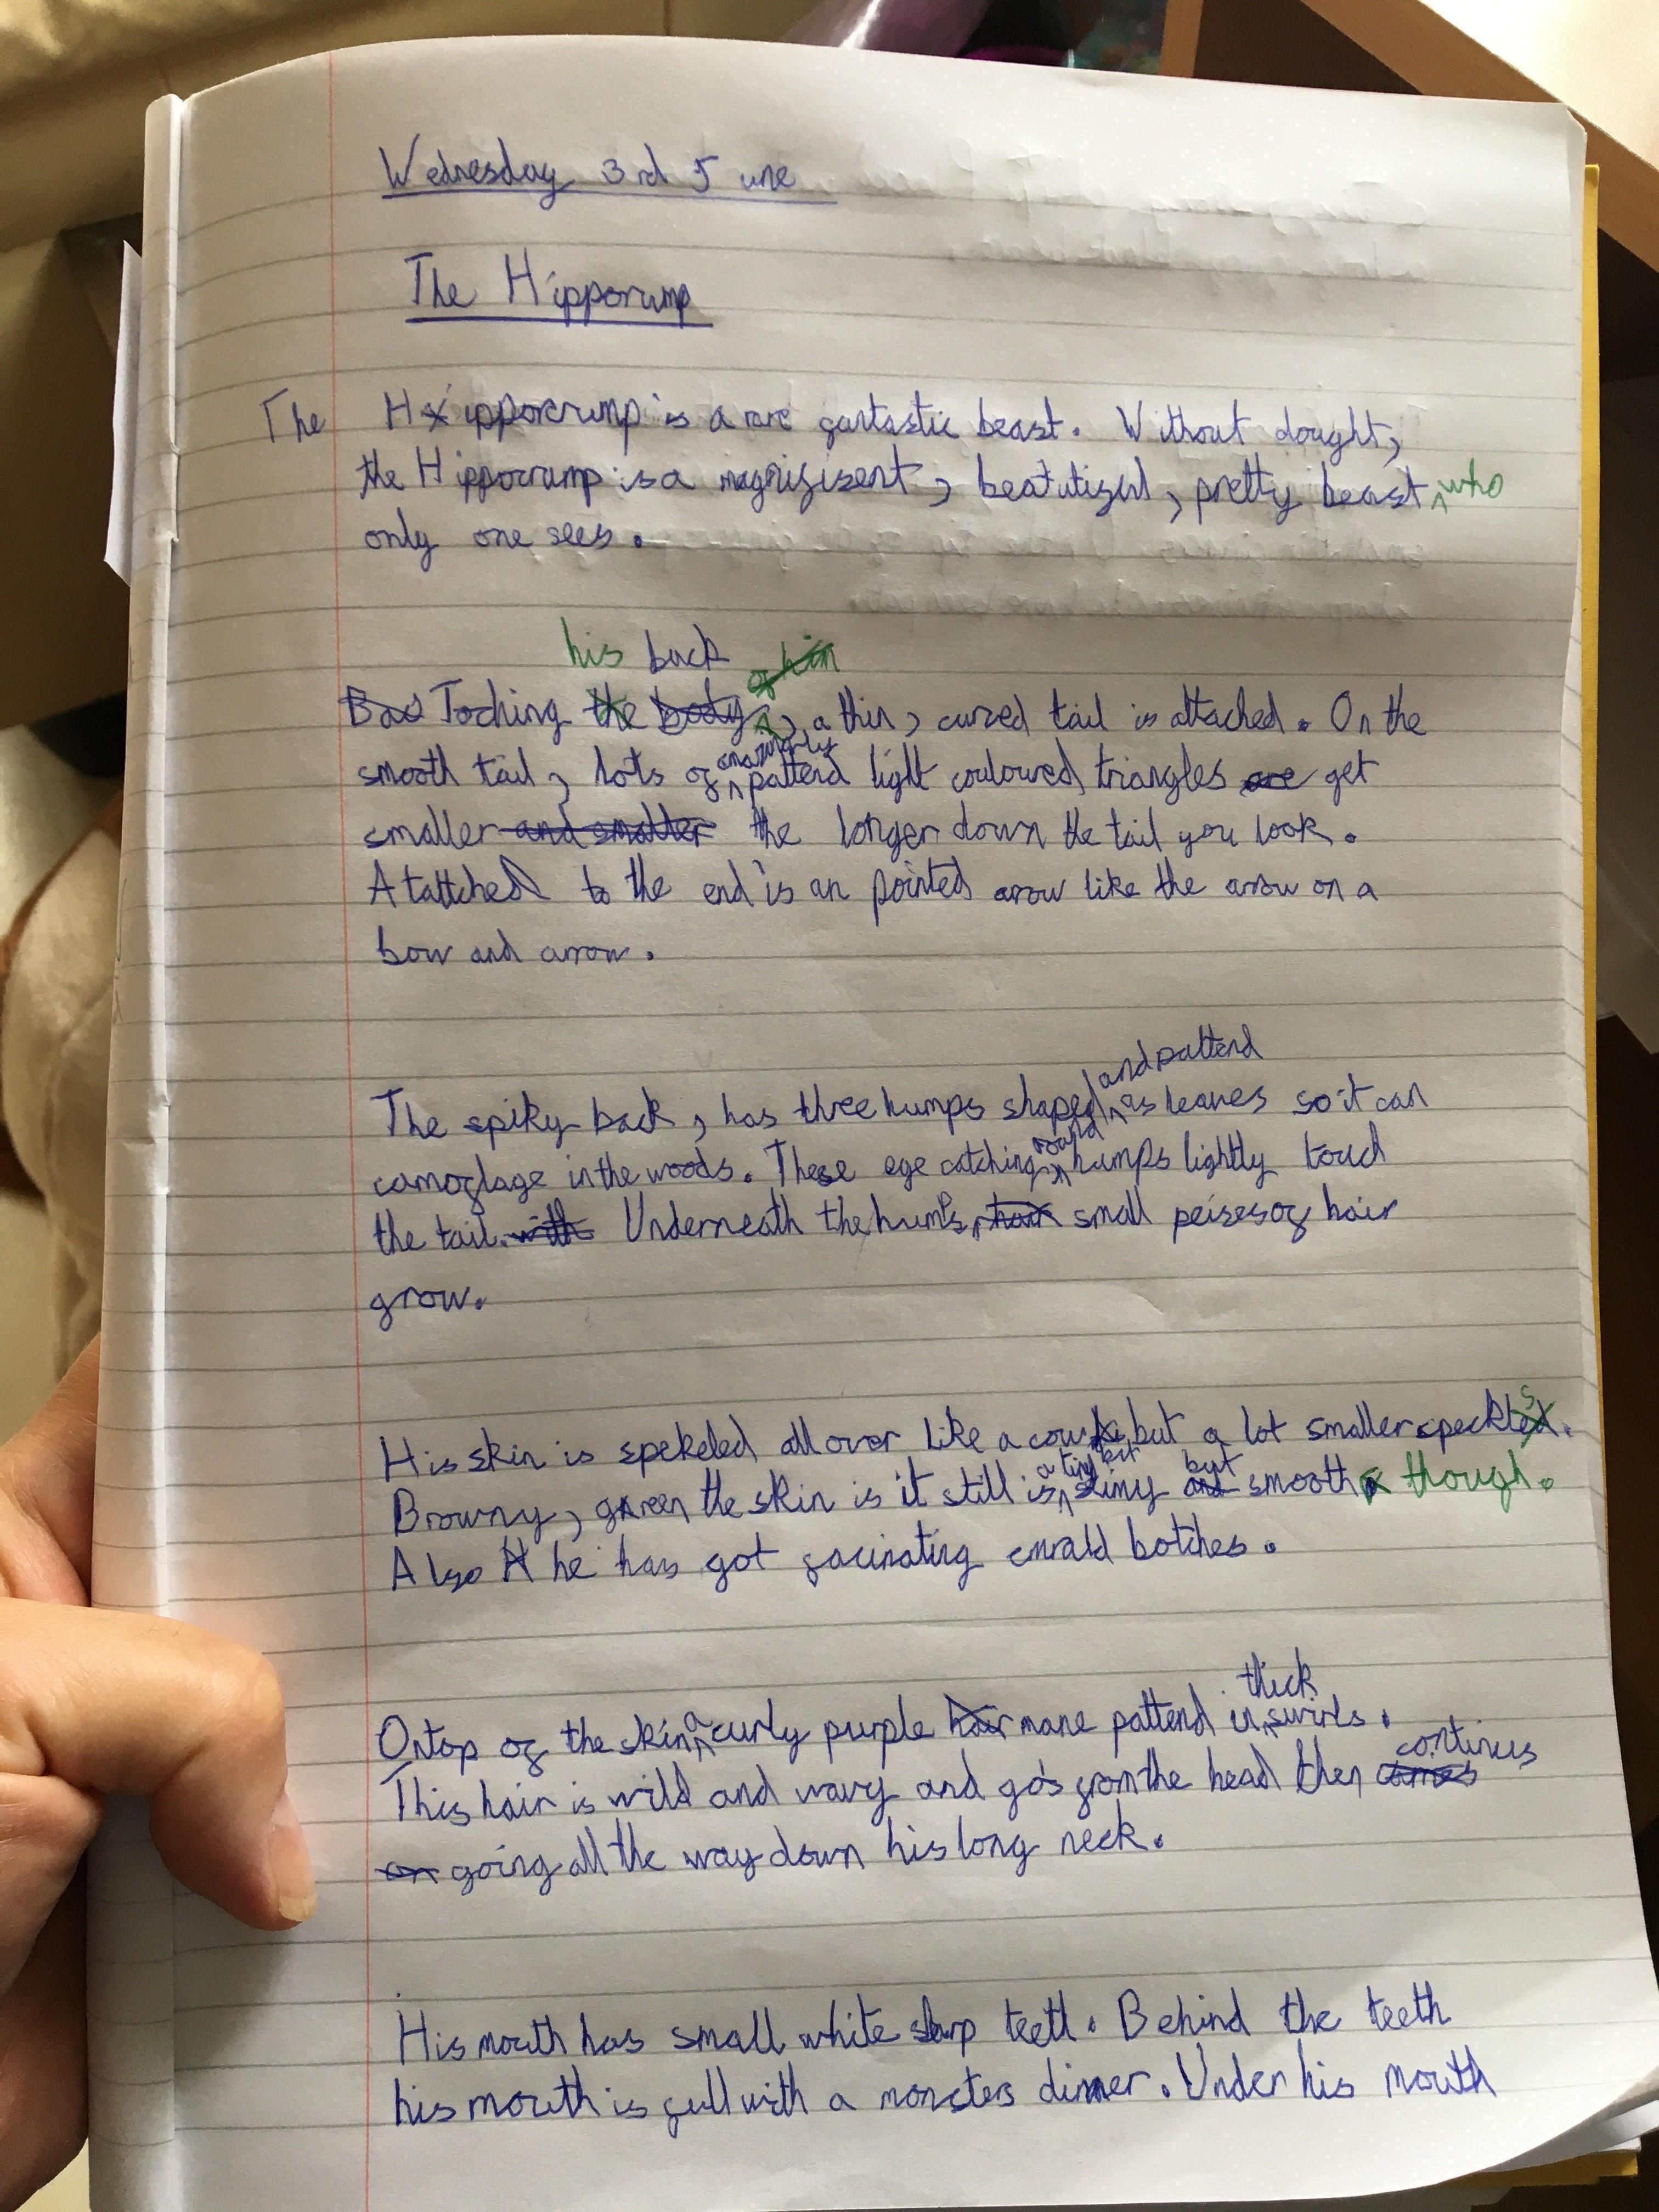 Wednesday 3rd June
The Hipporump
The Hippocrump is a rare fantastic beast. Without dought,
the Hippocrump is a magnifisent, beatutiful, pretty beast who
only one sees.
his back of him
Bac Toching the body, a thin, curved tail is attached. On the
smooth tail, lots of amazingly pattend light coulowred triangles are get
smaller and smaller the longer down the tail you look.
Atattched to the end is an pointed arrow like the arrow on a
bow and arrow.
and pattend
The spiky back, has three humps shaped as leaves so it can
camoflage in the woods. These eye catching round humps lightly touch
the tail. with Underneath the humps, hair small peises of hair
grow.
His skin is spekeled all over like a cow but a lot smaller speckles.
a tiny bit but
Browny, green the skin is it still is slimy and smooth though.
Also he has got facinating emrald botches.
thick
Ontop of the skin a curly purple hair mane pattend in swirls.
continues
This hair is wild and wavy and go's from the head then comes
on going all the way down his long neck.
His mouth has small white sharp teeth. Behind the teeth
his mouth is full with a monsters dinner. Under his mouth